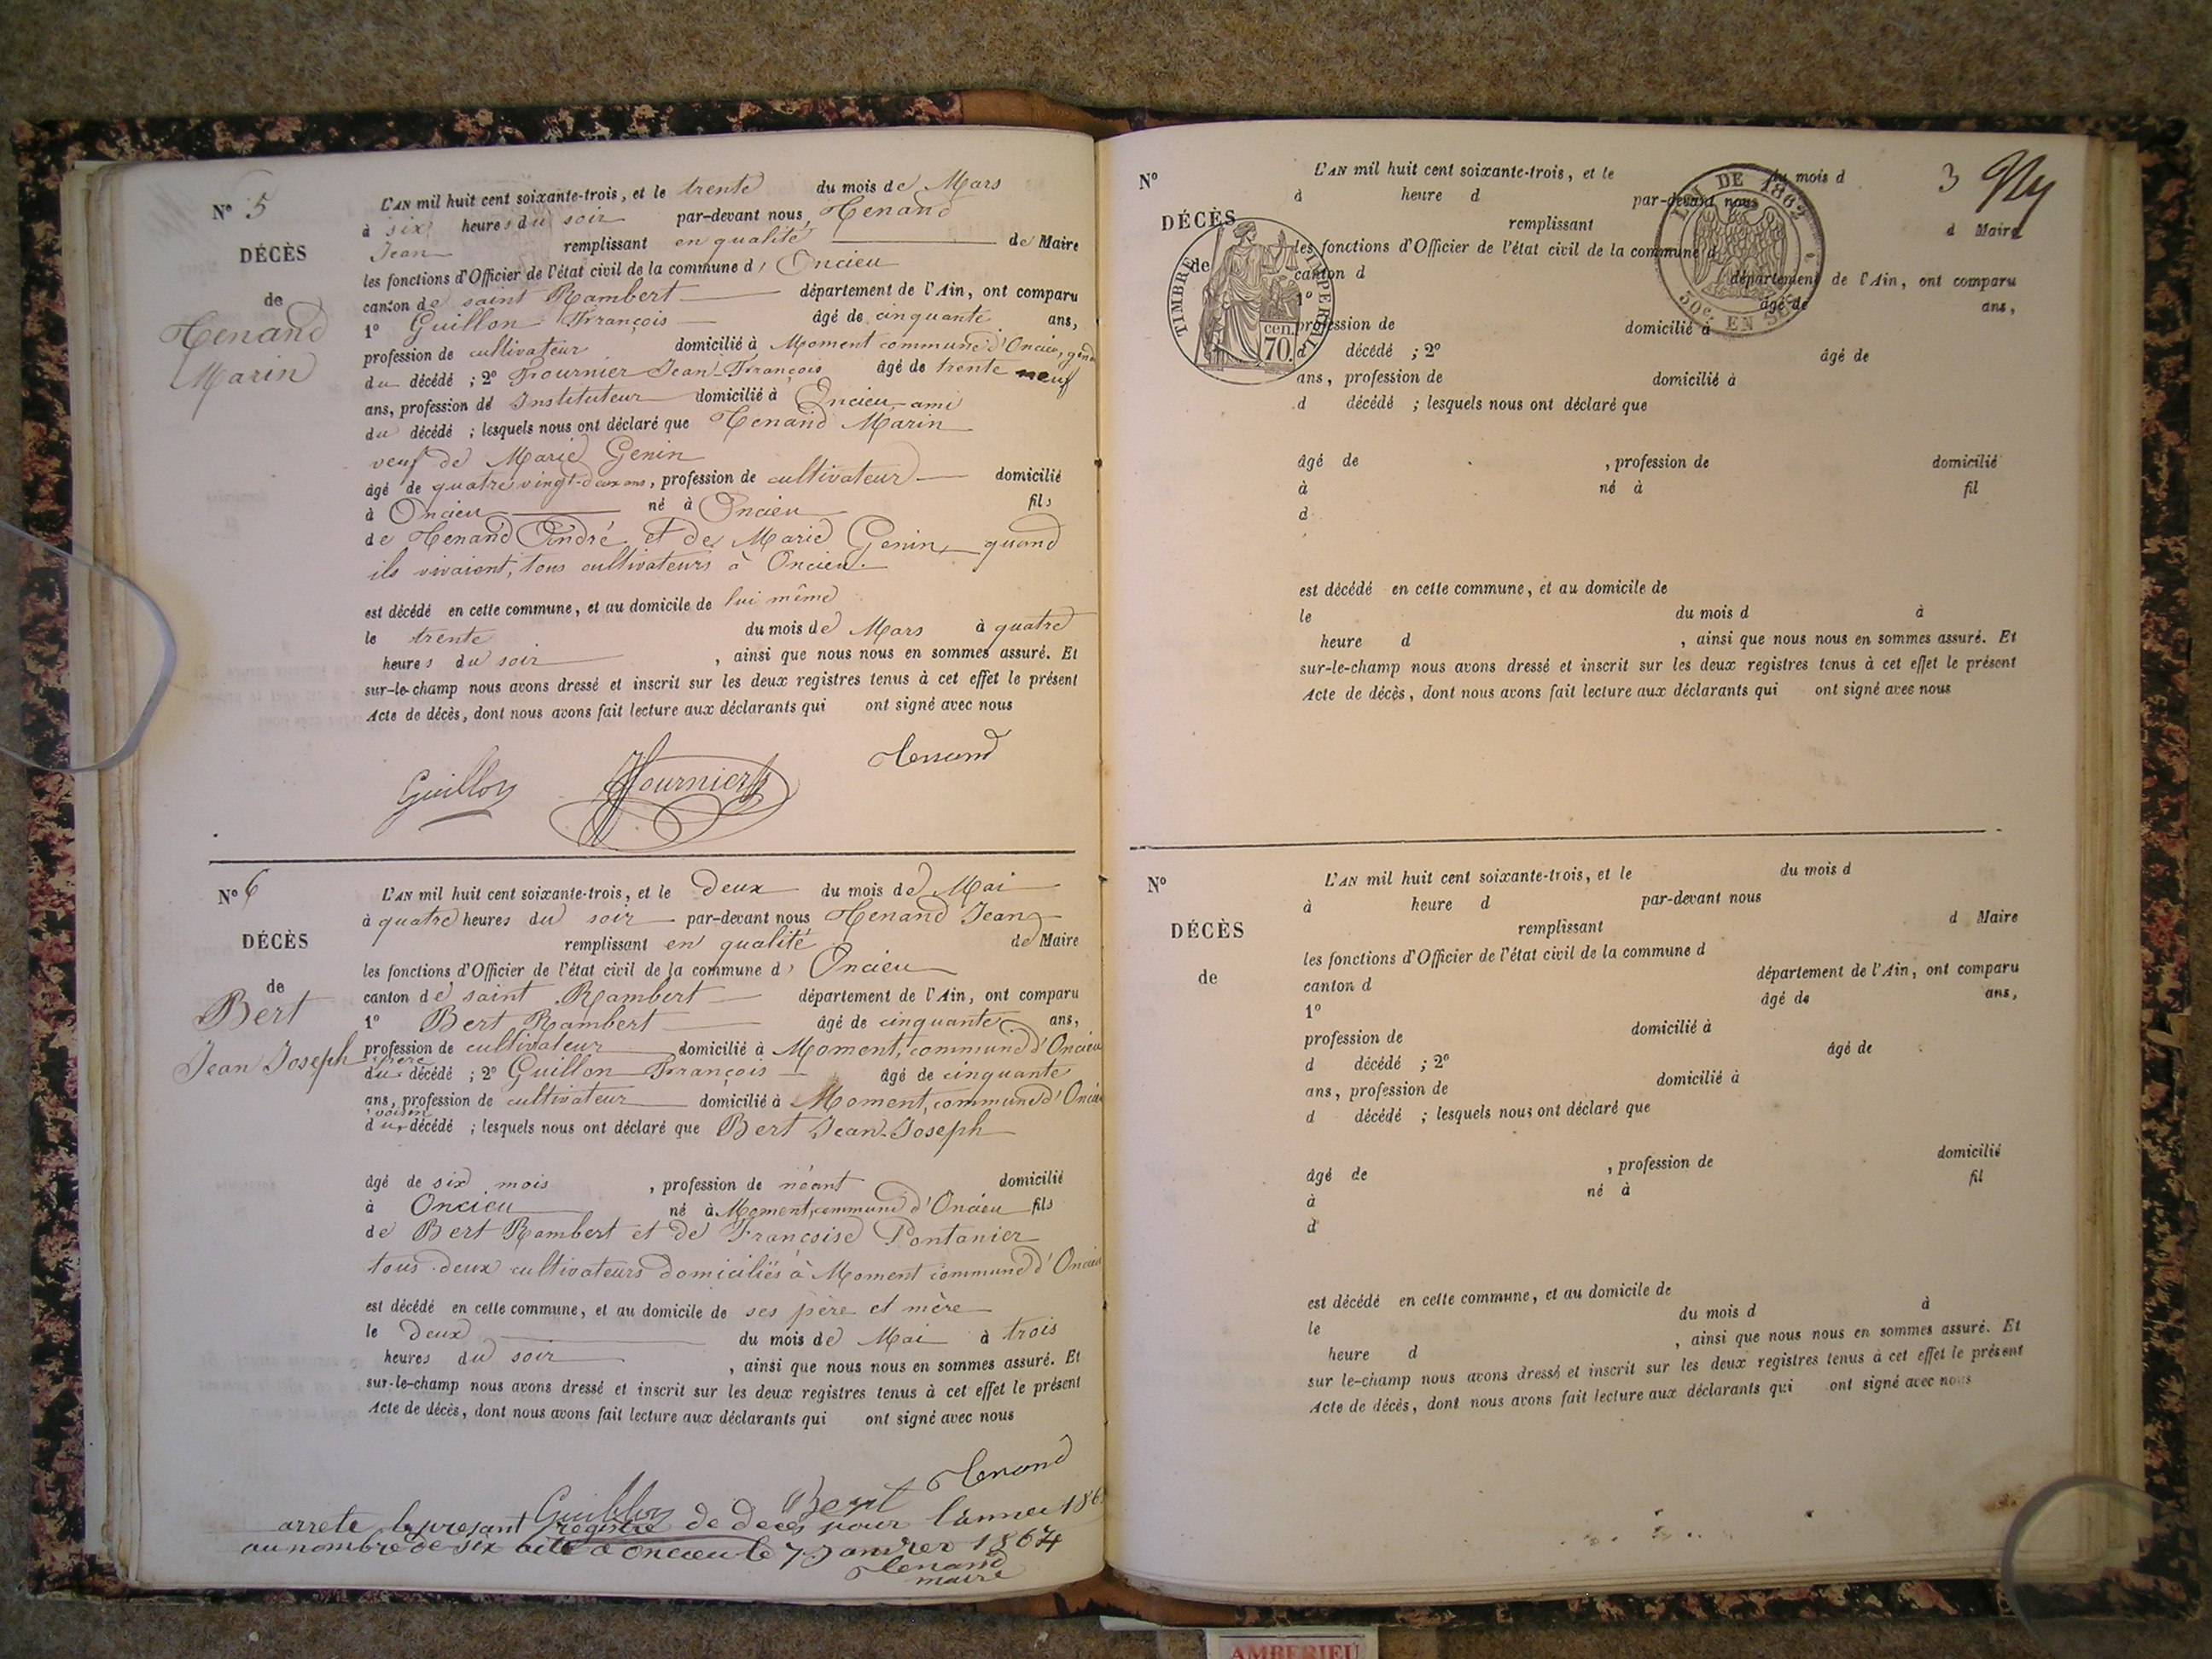 Nº 5
DÉCÈS
de
Tenand
Marin
L'AN mil huit cent soixante-trois, et le trente du mois de Mars
à six heures du soir par-devant nous, Tenand
Jean remplissant en qualité de Maire
les fonctions d'Officier de l'état civil de la commune d' Oncieu
canton de saint Rambert département de l'Ain, ont comparu
1º Guillon François âgé de cinquante ans,
profession de cultivateur domicilié à Moment commune d'Oncieu,
du décédé ; 2º Fournier Jean-François âgé de trente neuf
ans, profession de Instituteur domicilié à Oncieu ami
du décédé ; lesquels nous ont déclaré que Tenand Marin
veuf de Marie Genin
âgé de quatre vingt-deux ans, profession de cultivateur domicilié
à Oncieu né à Oncieu fils
de Tenand André et de Marie Genin, quand
ils vivaient, tous cultivateurs à Oncieu.
est décédé en cette commune, et au domicile de lui même
le trente du mois de Mars à quatre
heures du soir , ainsi que nous nous en sommes assuré. Et
sur-le-champ nous avons dressé et inscrit sur les deux registres tenus à cet effet le présent
Acte de décès, dont nous avons fait lecture aux déclarants qui ont signé avec nous
Guillon Fournier Tenand
Nº 6
DÉCÈS
de
Bert
Jean Joseph
L'AN mil huit cent soixante-trois, et le deux du mois de Mai
à quatre heures du soir par-devant nous Tenand Jean
remplissant en qualité de Maire
les fonctions d'Officier de l'état civil de la commune d' Oncieu
canton de saint Rambert département de l'Ain, ont comparu
1º Bert Rambert âgé de cinquante ans,
profession de cultivateur domicilié à Moment, commune d'Oncieu
père
du décédé ; 2º Guillon François âgé de cinquante
ans, profession de cultivateur domicilié à Moment, commune d'Oncieu
voisin
du décédé ; lesquels nous ont déclaré que Bert Jean-Joseph
âgé de six mois , profession de néant domicilié
à Oncieu né à Moment, commune d'Oncieu fils
de Bert Rambert et de Françoise Pontanier
tous deux cultivateurs domiciliés à Moment commune d'Oncieu
est décédé en cette commune, et au domicile de ses père et mère
le deux du mois de Mai à trois
heures du soir , ainsi que nous nous en sommes assuré. Et
sur-le-champ nous avons dressé et inscrit sur les deux registres tenus à cet effet le présent
Acte de décès, dont nous avons fait lecture aux déclarants qui ont signé avec nous
Guillon Bert Tenand
arrete le presant registre de deces pour l'annee
au nombre de six acte a oncieu le 7 Janvier 1864
Tenand
maire
3
Nº
DÉCÈS
de
TIMBRE IMPERIAL
70. cen.
LOI DE 1862
50c. EN SUS
L'AN mil huit cent soixante-trois, et le du mois d
à heure d par-devant nous
remplissant d Maire
les fonctions d'Officier de l'état civil de la commune d
canton d département de l'Ain, ont comparu
1º âgé de ans,
profession de domicilié à
d décédé ; 2º âgé de
ans, profession de domicilié à
d décédé ; lesquels nous ont déclaré que
âgé de , profession de domicilié
à né à fil
d
est décédé en cette commune, et au domicile de
le du mois d à
heure d , ainsi que nous nous en sommes assuré. Et
sur-le-champ nous avons dressé et inscrit sur les deux registres tenus à cet effet le présent
Acte de décès, dont nous avons fait lecture aux déclarants qui ont signé avec nous
Nº
DÉCÈS
de
L'AN mil huit cent soixante-trois, et le du mois d
à heure d par-devant nous
remplissant d Maire
les fonctions d'Officier de l'état civil de la commune d
canton d département de l'Ain, ont comparu
1º âgé de ans,
profession de domicilié à
d décédé ; 2º âgé de
ans, profession de domicilié à
d décédé ; lesquels nous ont déclaré que
âgé de , profession de domicilié
à né à fil
d
est décédé en cette commune, et au domicile de
le du mois d à
heure d , ainsi que nous nous en sommes assuré. Et
sur le-champ nous avons dressé et inscrit sur les deux registres tenus à cet effet le présent
Acte de décès, dont nous avons fait lecture aux déclarants qui ont signé avec nous
AMBERIEU